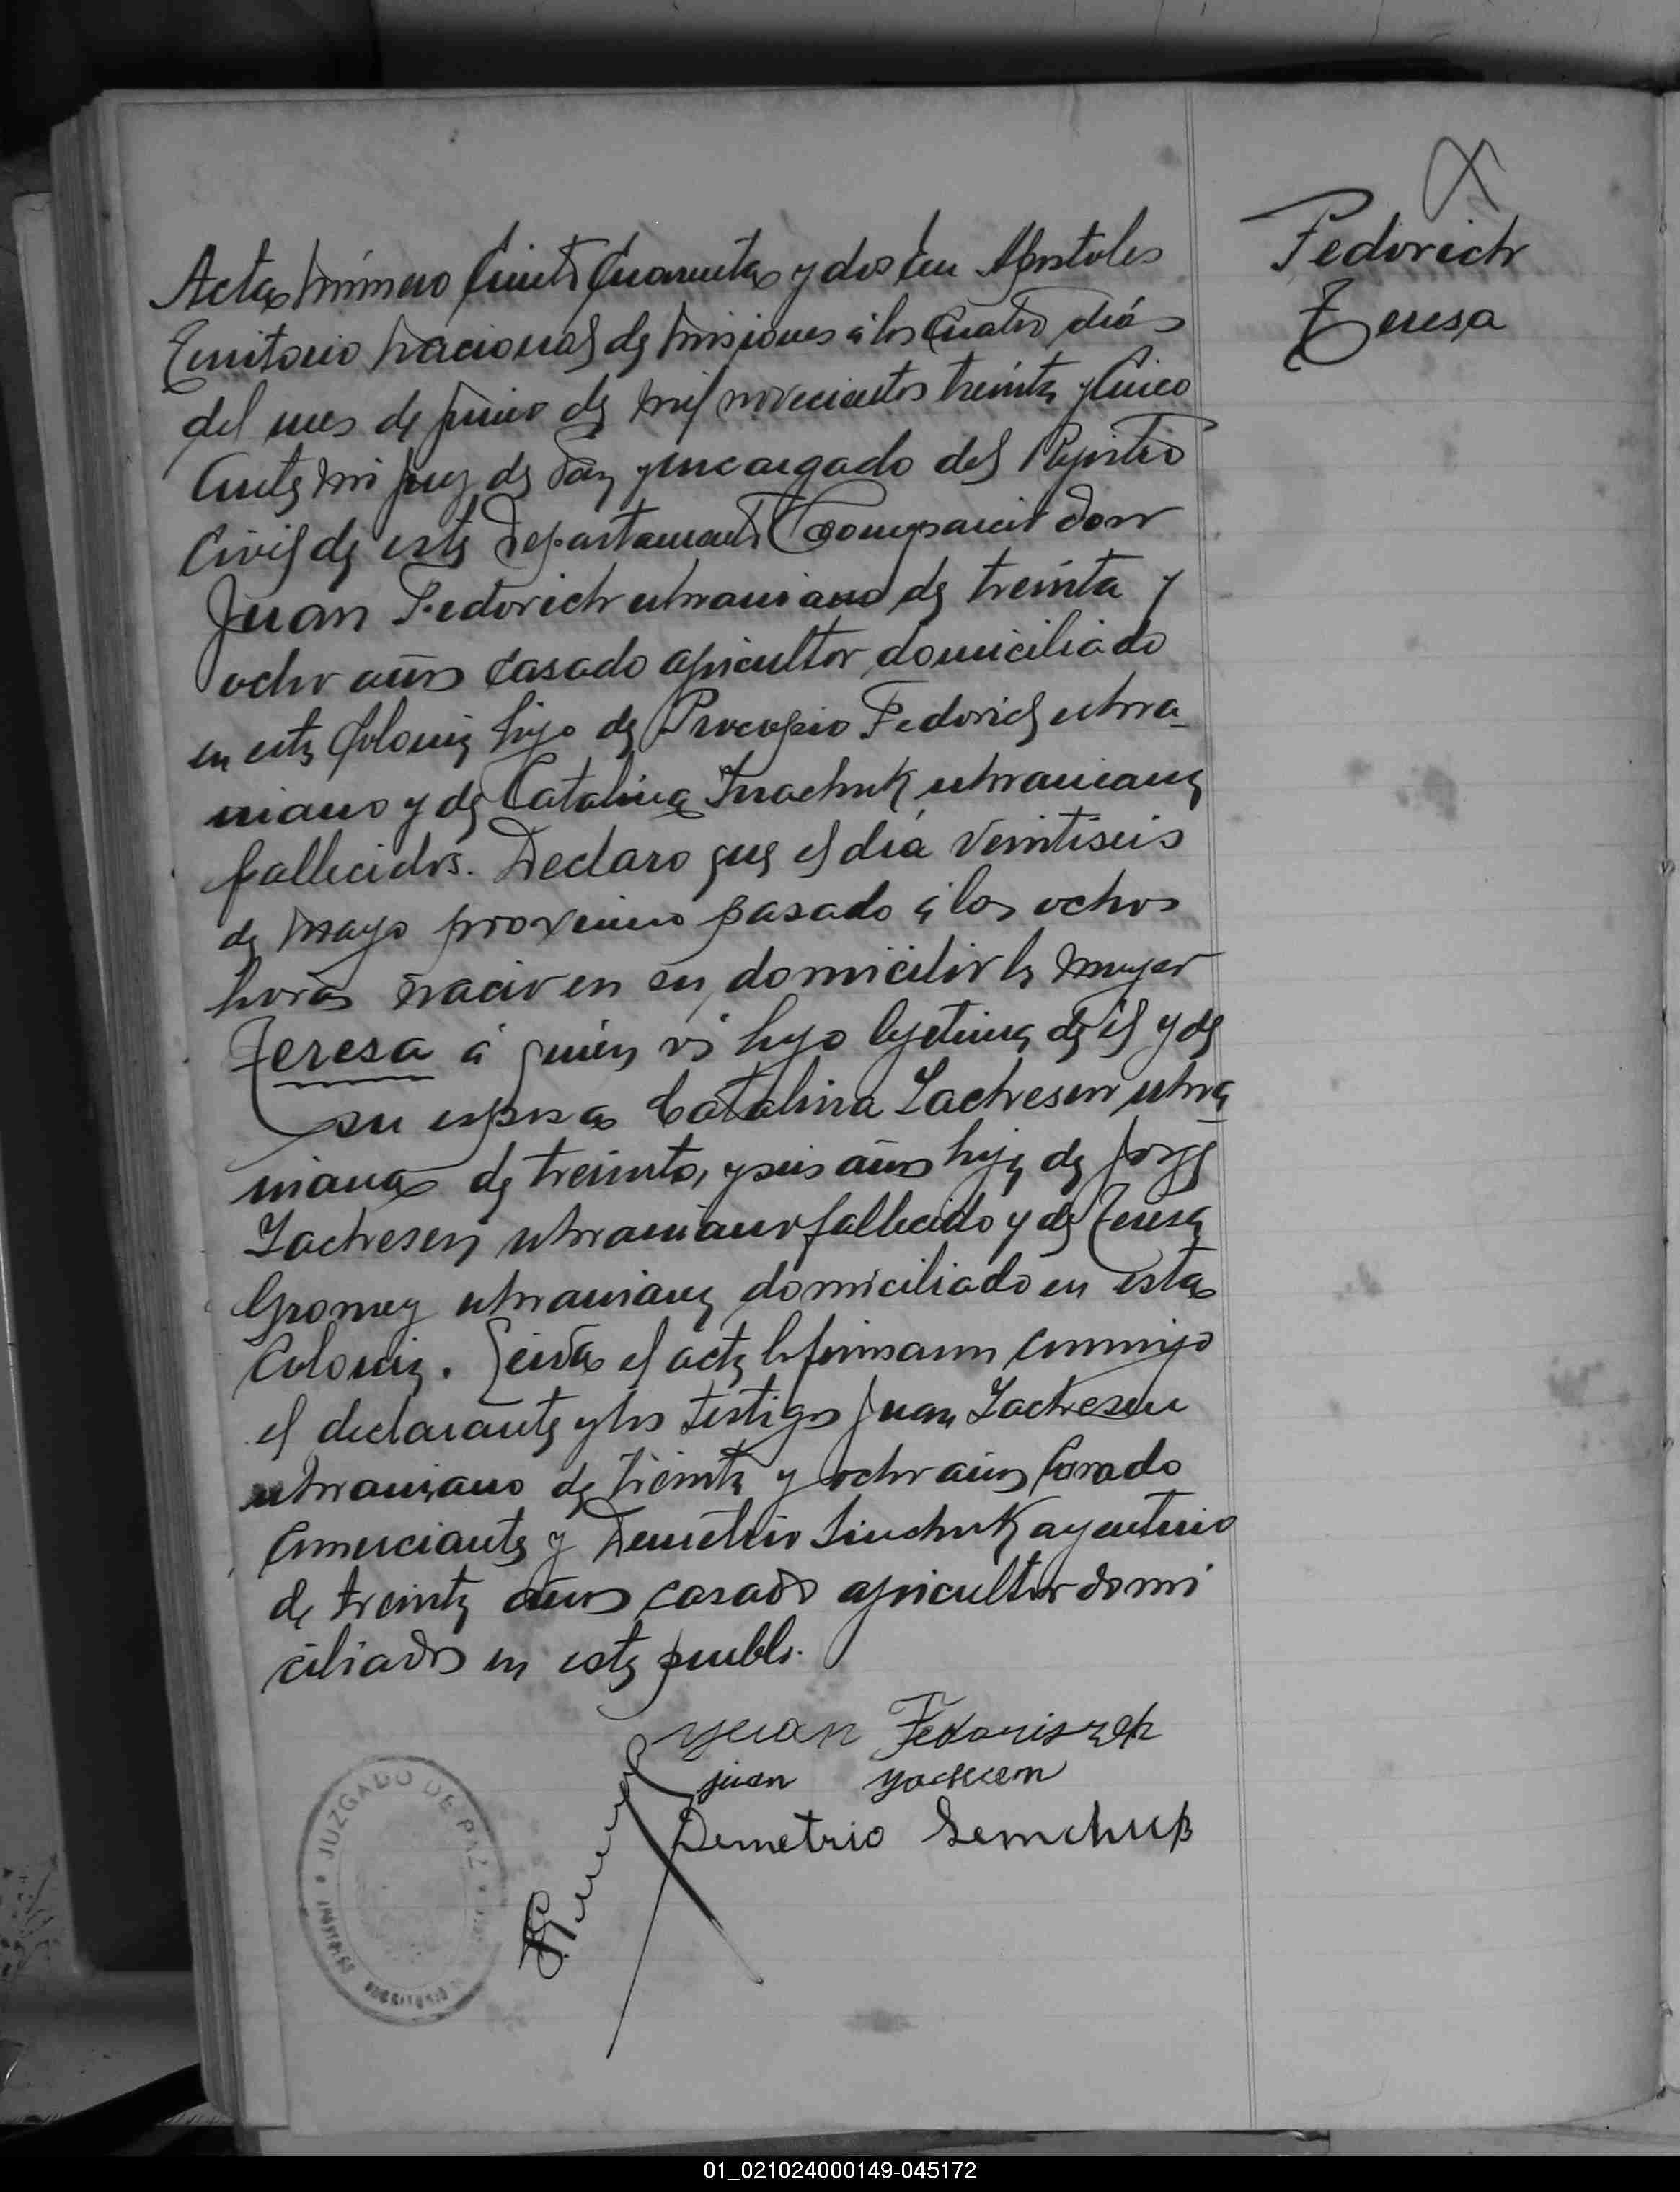 Fedorich
Teresa
Acta número Ciento Cuarenta y dos En Apostoles
Territorio Nacional de Misiones á los Cuatro días
del mes de Junio de mil novecientos treinta y Cinco
Ante mi Juez de Paz y encargado del Rejistro
Civil de este Departamento Comparecio don
Juan Fedorich ukraniano de treinta y
ocho años casado agricultor domiciliado
en esta Colonia hijo de Procopio Fedorich ukra-
niano y de Catalina ukraniana
fallecidos. Declaro que el día Veintiseis
de Mayo proximo pasado á las ochos
horas nacio en su domicilio la mujer
Teresa á quien vi hija lejitima de él y de
su esposa Catalina Iachesen ukra-
niana de treinta y seis años hija de Jorge
Iachesen ukraniano fallecido y de Teresa
Gromey ukraniana domiciliado en esta
Colonia. Leida el acta la firmaron conmigo
el declarante y los testigos Juan Iachesen
ukraniano de treinta y ocho años Casado
Comerciante y Demetrio argentino
de treinta años casado agricultor domi
ciliados en este pueblo.
Juan Fedoriszen
juan
Demetrio Semchuk
JUZGADO DE PAZ
APOSTOLES
01_021024000149-045172